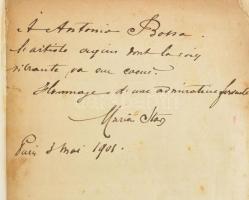 A Antonio Bossa.
L'artiste exquis dont la voix
vibrante va au coeur.
Hommage d'une admiratrice fervente
Maria Star
Paris 3 Mai 1901.